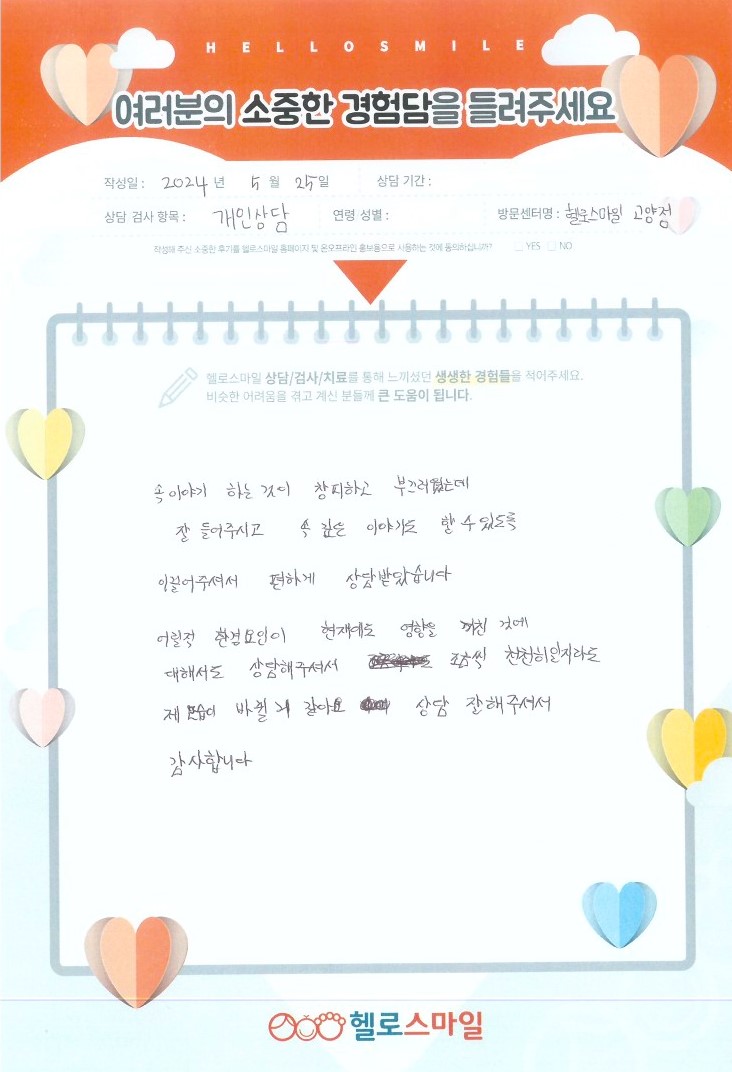 HELLOSMILE
여러분의 소중한 경험담을 들려주세요
작성일 : 2024 년 5 월 25일 상담 기간 :
상담 검사 항목 : 개인상담 연령 성별 : 방문센터명 : 헬로스마일 고양점
작성해 주신 소중한 후기를 헬로스마일 홈페이지 및 온오프라인 홍보용으로 사용하는 것에 동의하십니까? YES NO
헬로스마일 상담/검사/치료를 통해 느끼셨던 생생한 경험들을 적어주세요.
비슷한 어려움을 겪고 계신 분들께 큰 도움이 됩니다.
속 이야기 하는 것이 창피하고 부끄러웠는데
잘 들어주시고 속 깊은 이야기도 할 수 있도록
이끌어주셔서 편하게 상담받았습니다
어릴적 환경요인이 현재에도 영향을 끼친 것에
대해서도 상담해주셔서 조금씩 천천히일지라도
제 모습이 바뀔 거 같아요 상담 잘 해주셔서
감사합니다
헬로스마일